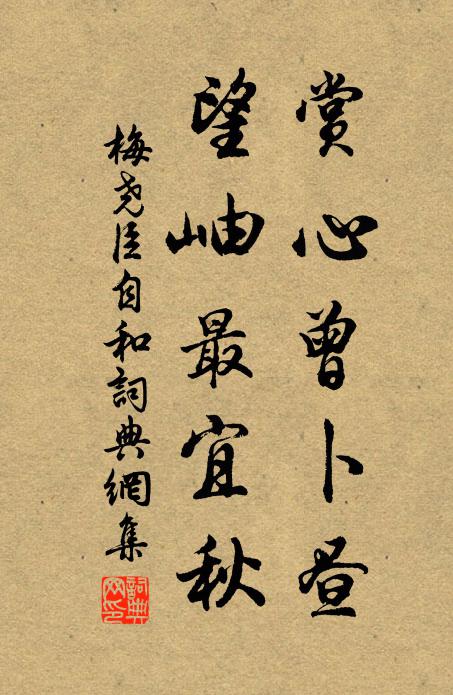 賞心曾卜昼
望岫最宜秋
梅尧臣自和詞典網集
詞典
网印